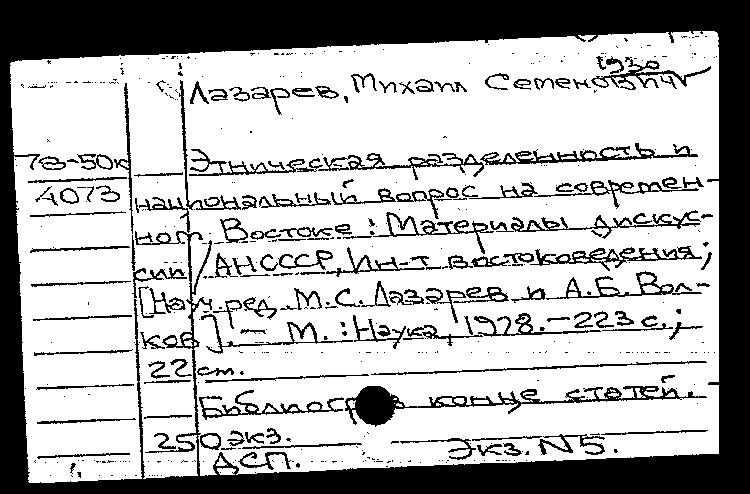 1930
Лазарев, Михаил Семенович
78-50к Этническая разделенность и
4073 национальный вопрос на современ-
ном Востоке : Материалы дискус-
сии / АН СССР, Ин-т востоковедения;
[Науч. ред. М.С. Лазарев и А.Б. Вол-
ков]. – М. : Наука, 1978. – 223 с.;
22 см.
Библиогр в конце статей.
250 экз.
ДСП. Экз. N 5.